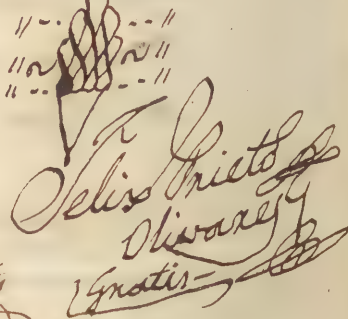 Felix Prieto
Olivares y
Ygnatis